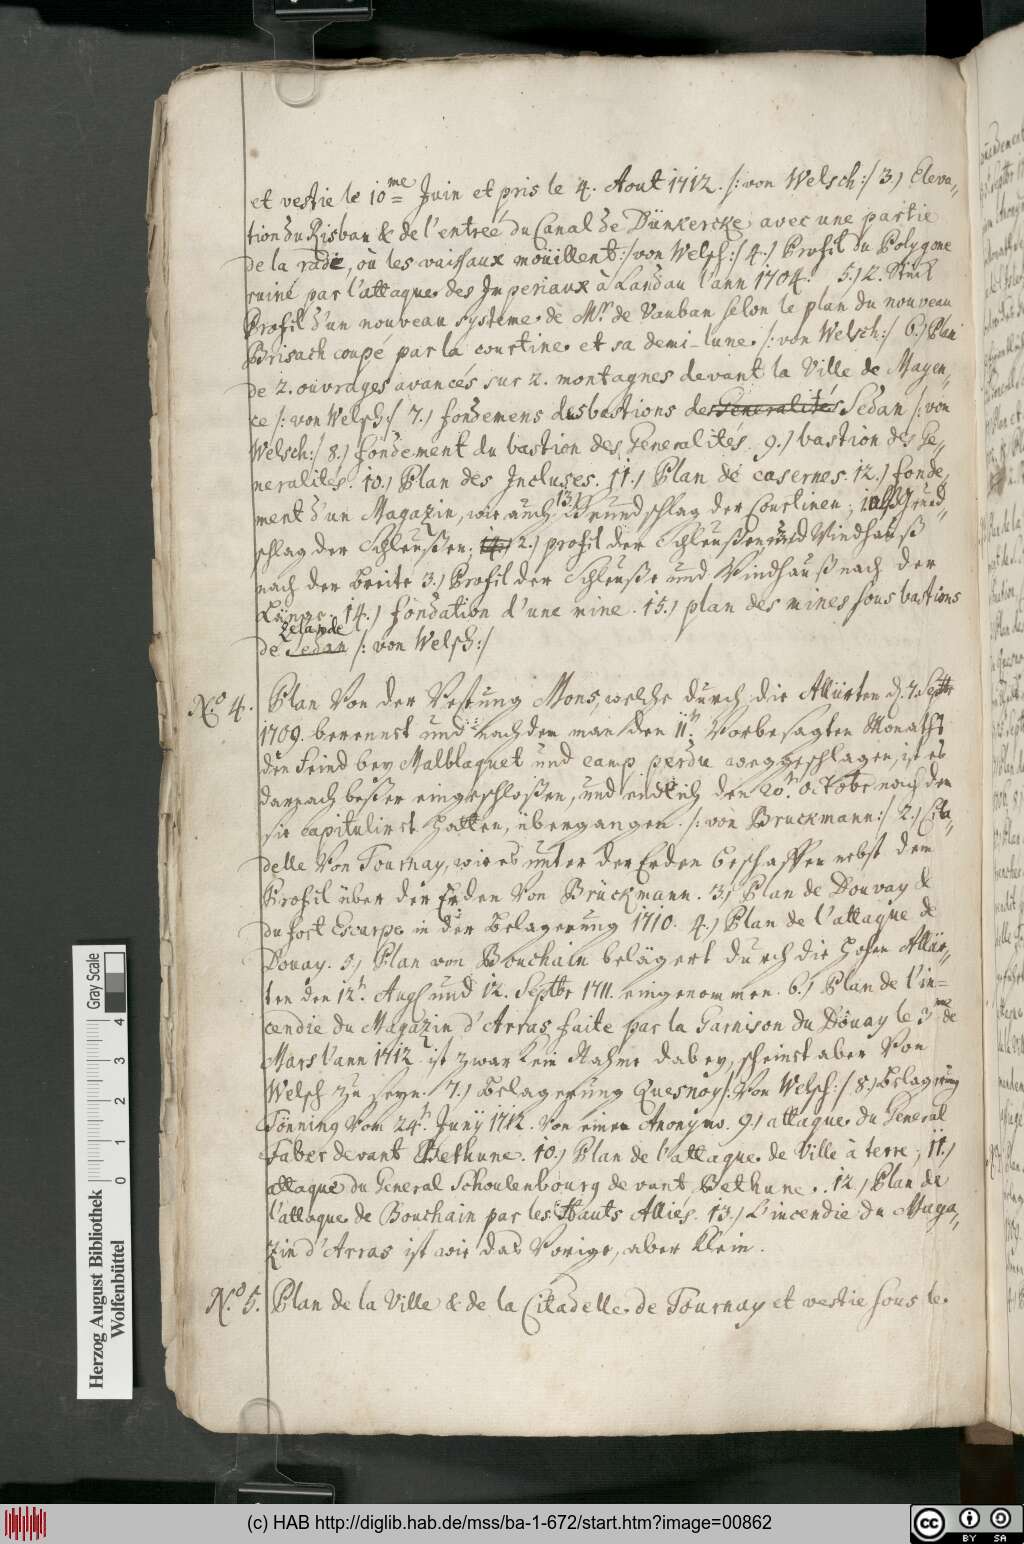 et vestie le 10me Juin et pris le 4. Aout 1712. /: von Welsch :/ 3.) Eleva„
tion du Risban & de l'entreé du Canal de Dünkercke avec une partie
de la rade, où les vaissaux moüillent :/ von Welsch :/ 4.) Profil du Polygone
ruiné par l'attaque des Imperiaux à Landau l'ann 1704. 5.) 2. Stück
Profil d'un nouveau systeme de Mr. de Vauban selon le plan du nouveau
Brisach coupé par la courtine et sa demi-lune. /: von Welsch :/ 6.) Plan
de 2. ouvrages avancés sur 2. montagnes devant la Ville de Mayen„
ce /: von Welsch :/ 7.) fondemens des bastions des Generalités Sedan /: von
Welsch :/ 8.) fondement du bastion des Generalités. 9.) bastion des Ge„
neralités. 10.) Plan des Incluses. 11.) Plan de casernes. 12.) fonde„
ment d'un Magazin, wie auch 13.) Grundschlag der Courtinen; 1. als Grund„
schlag der Schleußen; 14.) 2.) profil der Schleußen und Windhauß
nach der Breite 3.) Profil der Schleuße und Windhauß nach der
Länge. 14.) fondation d'une mine. 15.) plan des mines sous bastions
Zelande
de Sedan /: von Welsch :/
No. 4. Plan Von der Vestung Mons, welche durch die Alliirten d. 7. Septbr
1709. berennet und nachdem man den 11n. Vorbesagten Monaths
den Feind bey Malblaquet und camp perdu weggeschlagen, ist es
darnach beßer eingeschloßen, und endlich den 20n. Octobr nach dem
sie capitulirt hatten, übergangen. /: von Bruckmann :/ 2.) Cita„
delle Von Tournay, wie es unter der Erden beschaffen nebst dem
Profil über der Erden Von Brückmann. 3.) Plan de Douvay &
du fort Escarpe in der Belagerung 1710. 4.) Plan de l'attaque de
Douay. 5.) Plan von Bouchain belägert durch die hohen Alliir„
ten den 12n. Aug. und 12. Septbr 1711. eingenommen. 6.) Plan de l'in=
cendie du Magazin d'Arras faite par la Garnison du Döuay le 3me de
Mars l'ann 1712 ist zwar kein Nahme dabey, scheinet aber Von
Welsch zu seyn. 7.) Belagerung Quesnoy /: Von Welsch :/ 8.) Belagerung
Tönning Vom 24n. Junÿ 1712. Von einem Anonymo. 9.) attaque du General
Faber devant Bethune. 10.) Plan de l'attaque de Ville à terre; 11.)
attaque du General Schoulenbourg devant Bethune. 12.) Plan de
l'attaque de Bouchain par les Hauts Alliés. 13.) L'incendie du Maga„
zin d'Arras ist wie das Vorige, aber klein.
No. 5. Plan de la Ville & de la Citadelle de Tournay et vestie sous le
Herzog August Bibliothek
Wolfenbüttel
0 1 2 3 4
Gray Scale
(c) HAB http://diglib.hab.de/mss/ba-1-672/start.htm?image=00862
cc BY SA